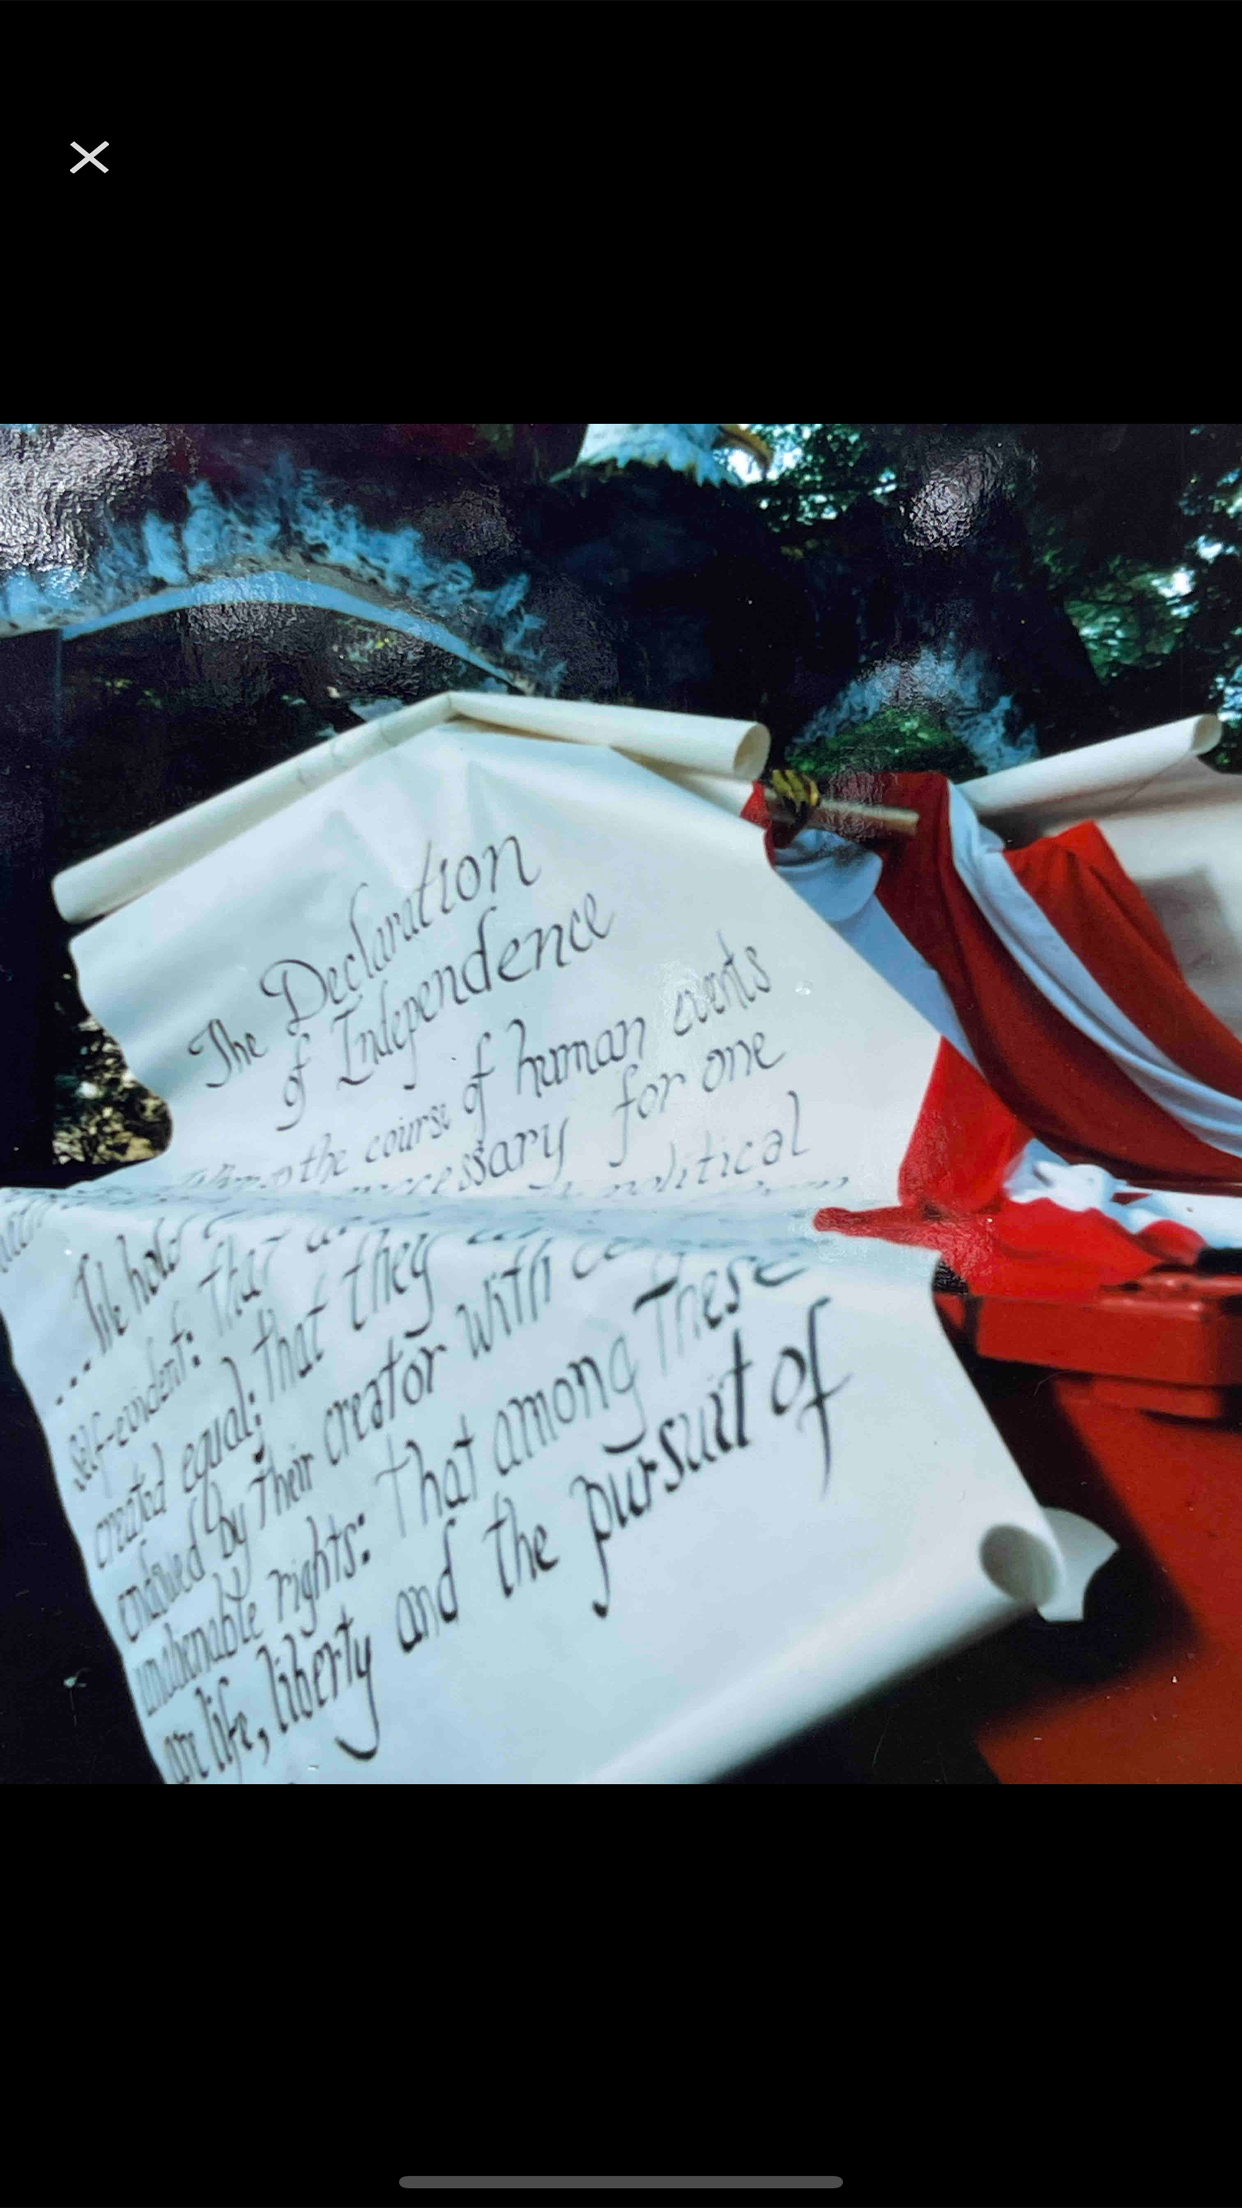 The Declaration
of Independence
the course of human events
necessary for one
political
...We hold
self-evident: that
created equal; that they
endowed by their creator with
unalienable rights: That among these
are life, liberty and the pursuit of